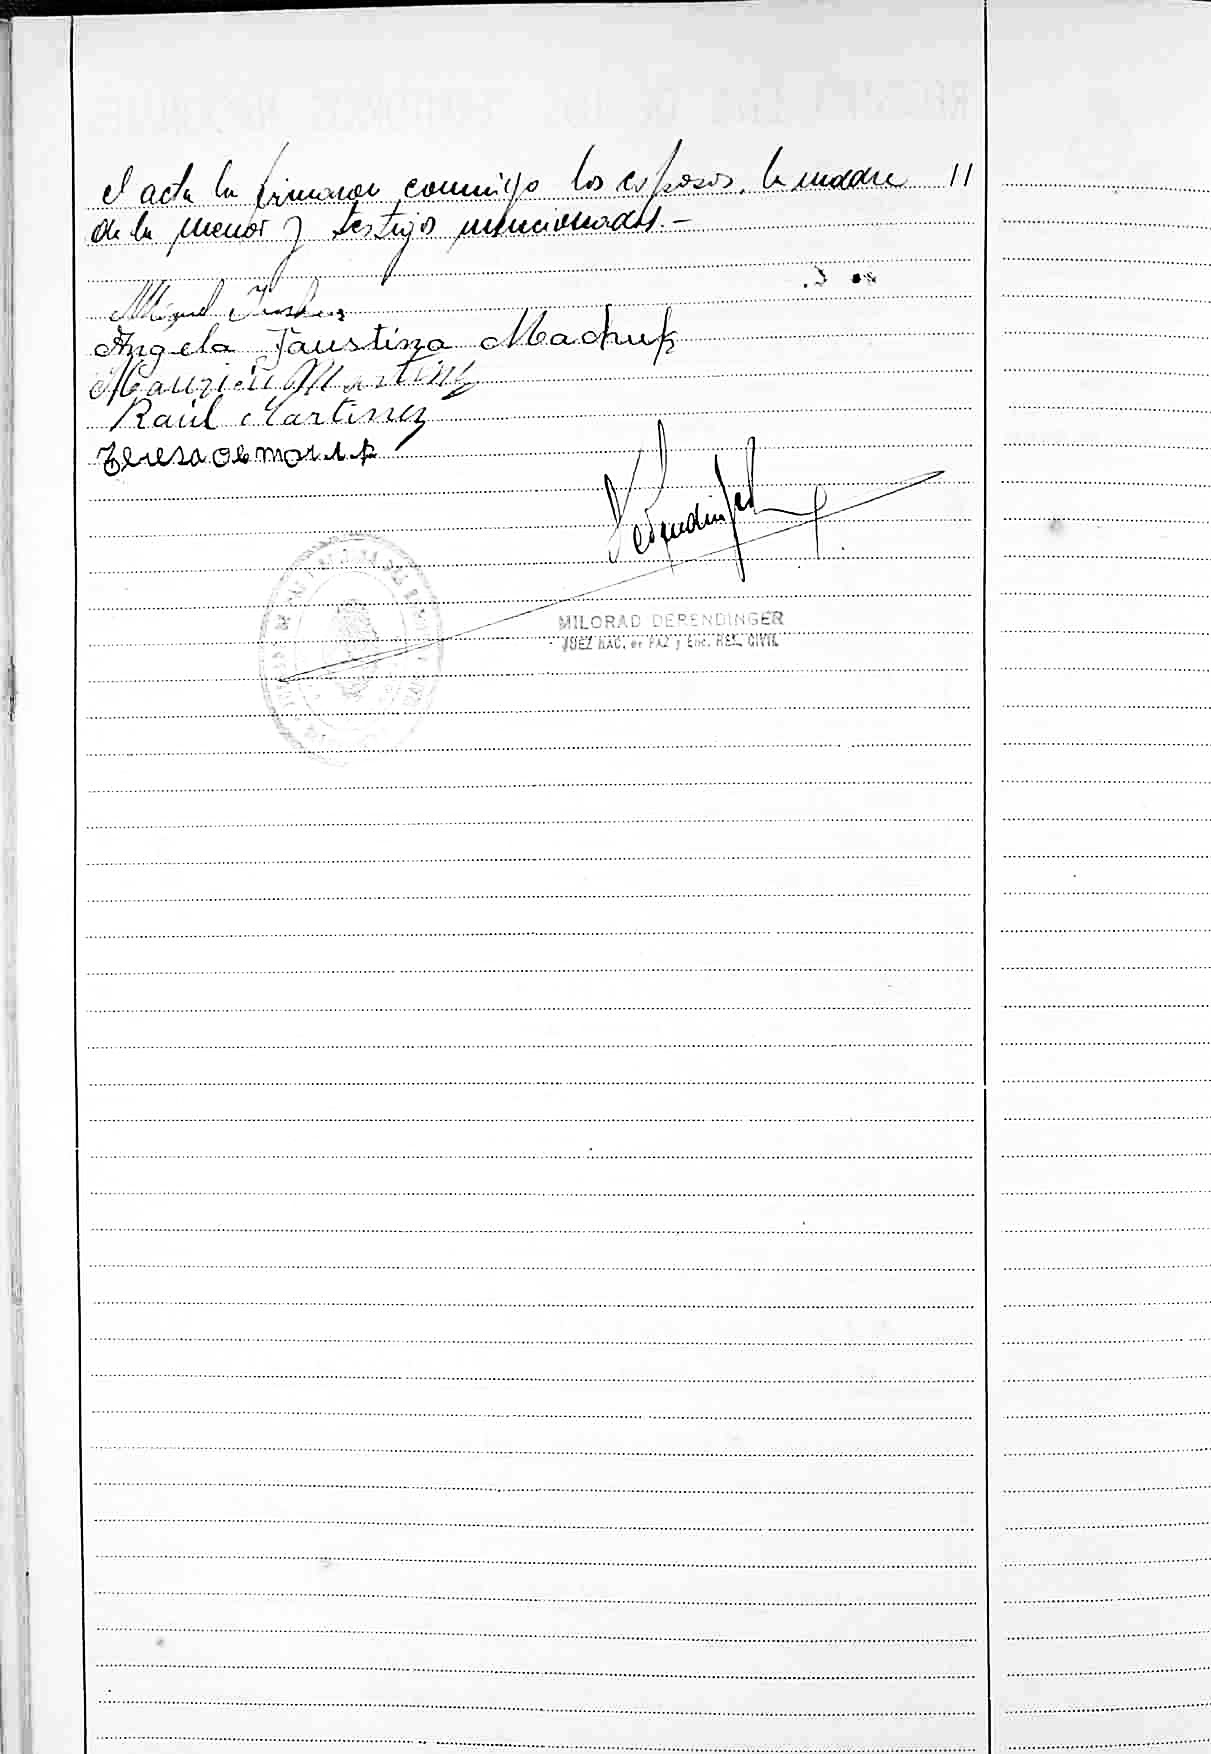 el acta la firmaron conmigo los esposos, la madre 11
de la menor y testigos mencionados.-
Miguel
Angela Faustina Machuk
Mauricio Martinez
Raúl Martinez
Teresa
Derendinger
MILORAD DERENDINGER
JUEZ NAC. de PAZ y Enc. REG. CIVIL